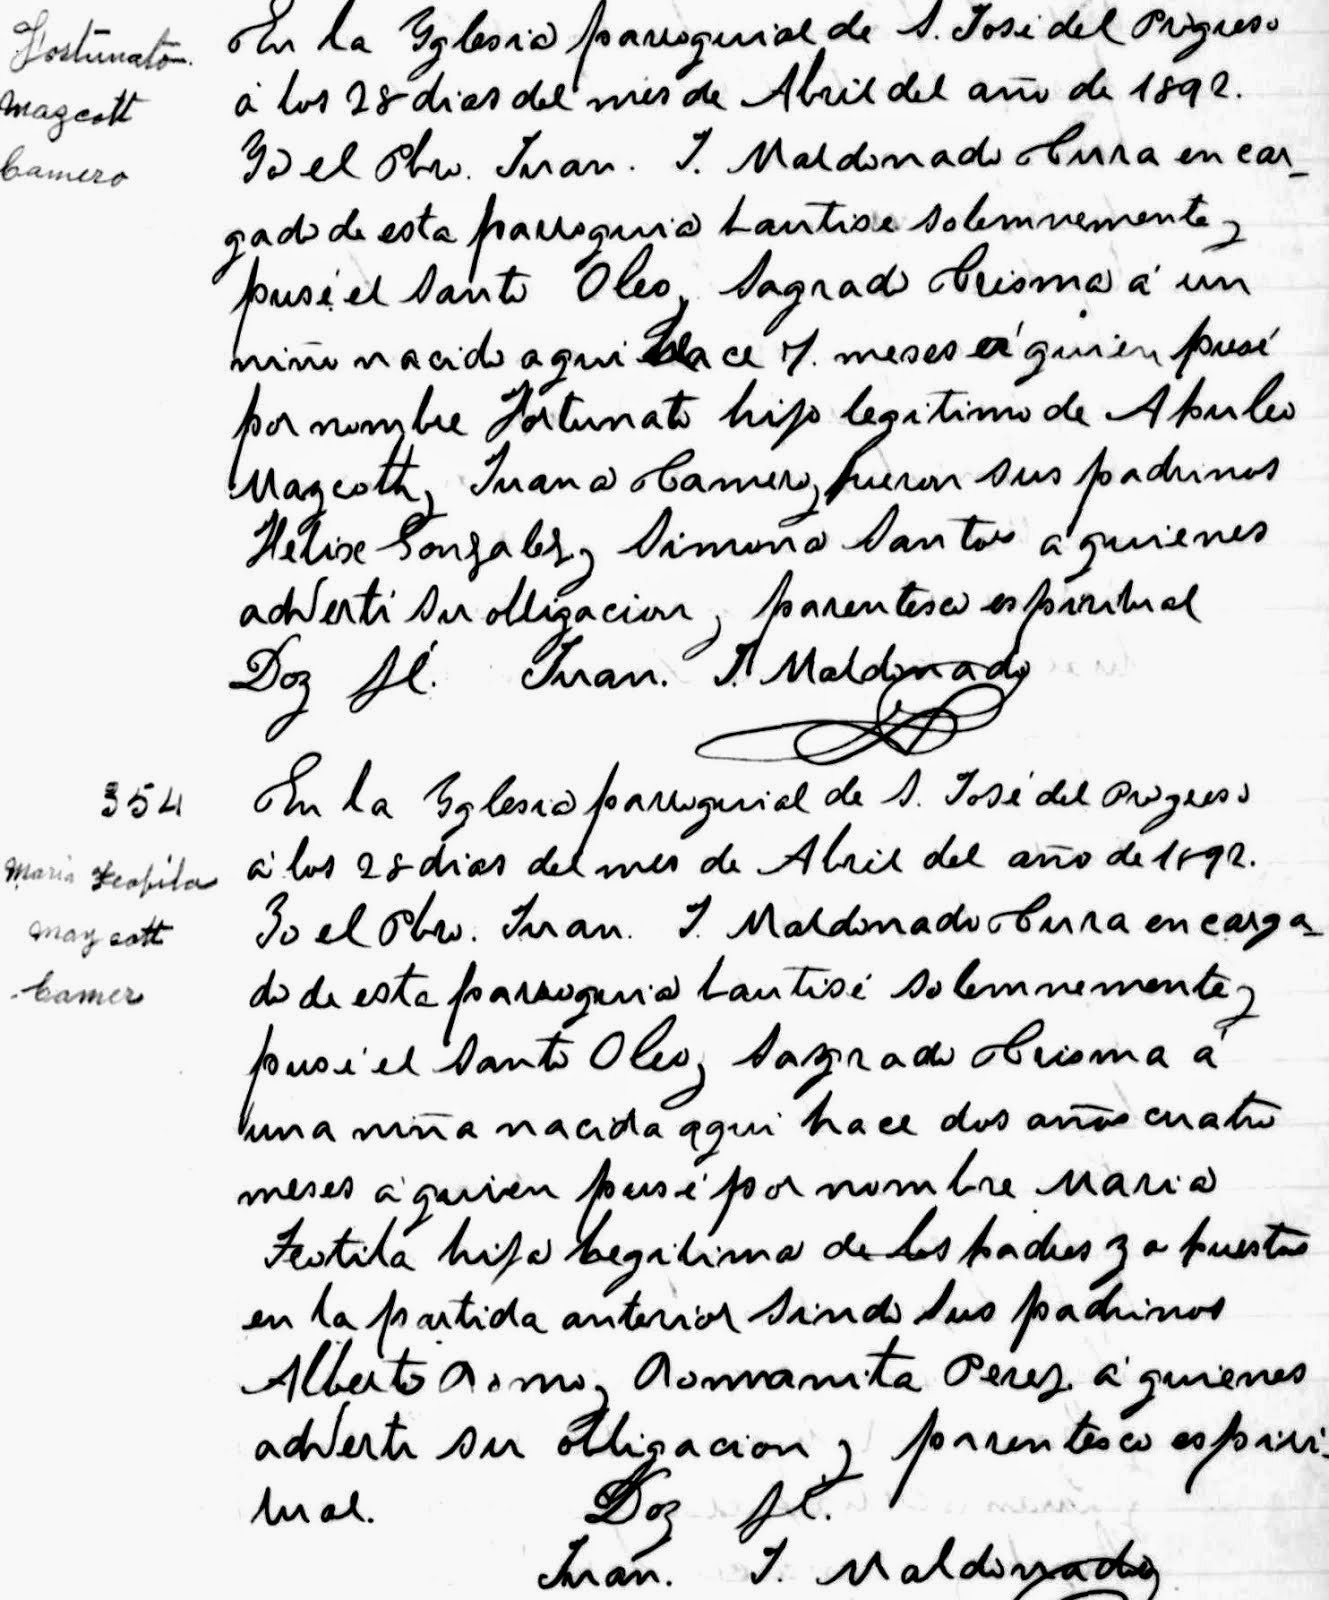 Fortunato
Mazcott
Camero
En la Yglesia parroquial de S. José del Progreso
á los 28 dias del mes de Abril del año de 1892.
Yo el Pbro. Juan. J. Maldonado Cura encar_
gado de esta parroquia bautise solemnemente y
pusé el Santo Oleo y Sagrado Crisma á un
niño nacido aqui hace 7. meses á quien pusé
por nombre Fortunato hijo legitimo de Apuleo
Mazcott y Juana Camero y fueron sus padrinos
Felix Gonzalez y Simona Santos á quienes
adverti su obligacion y parentesco espiritual
Doy fé. Juan. J. Maldonado
354
Maria Teofila
Mazcott
Camero
En la Yglesia parroquial de S. José del Progreso
á los 28 dias del mes de Abril del año de 1892.
Yo el Pbro. Juan. J. Maldonado Cura encarga_
do de esta parroquia bautisé solemnemente y
pusé el Santo Oleo y Sagrado Crisma á
una niña nacida aqui hace dos años cuatro
meses á quien pusé por nombre Maria
Teotila hija legitima de los padres ya puestos
en la partida anterior sindo sus padrinos
Alberto Romo y Romanita Perez á quienes
adverti su obligacion y parentesco espiri_
tual. Doy fé.
Juan. J. Maldonado